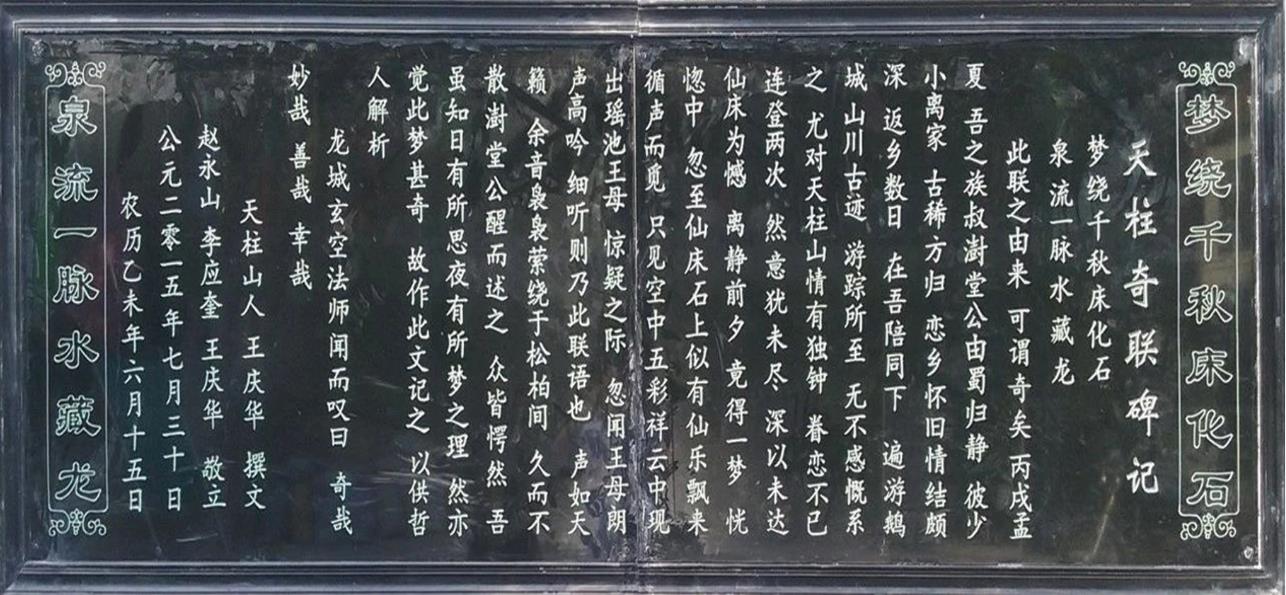 梦绕千秋床化石
天柱奇联碑记
梦绕千秋床化石
泉流一脉水藏龙
此联之由来 可谓奇矣 丙戌孟
夏 吾之族叔澍堂公由蜀归静 彼少
小离家 古稀方归 恋乡怀旧情结颇
深 返乡数日 在吾陪同下 遍游鹅
城山川古迹 游踪所至 无不感慨系
之 尤对天柱山情有独钟 眷恋不已
连登两次 然意犹未尽 深以未达
仙床为憾 离静前夕 竟得一梦 恍
惚中 忽至仙床石上似有仙乐飘来
循声而觅 只见空中五彩祥云中现
出瑶池王母 惊疑之际 忽闻王母朗
声高吟 细听则乃此联语也 声如天
籁 余音袅袅萦绕于松柏间 久而不
散澍堂公醒而述之 众皆愕然 吾
虽知日有所思夜有所梦之理 然亦
觉此梦甚奇 故作此文记之 以供哲
人解析
龙城玄空法师闻而叹曰 奇哉
妙哉 善哉 幸哉
天柱山人 王庆华 撰文
赵永山 李应奎 王庆华 敬立
公元二零一五年七月三十日
农历乙未年六月十五日
泉流一脉水藏龙